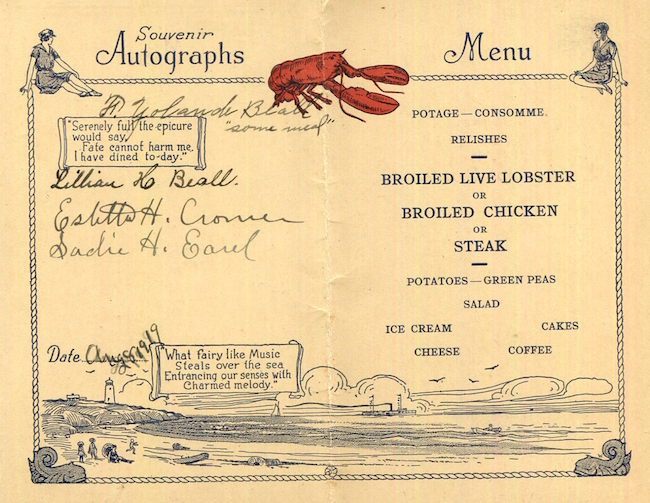 Souvenir
Autographs
F. Yolande Beall
"some meal"
"Serenely full, the epicure
would say,
Fate cannot harm me,
I have dined to-day."
Lillian H Beall.
Estella H. Cromer
Sadie H. Earel
Date Aug 8 1919
"What fairy like Music
Steals over the sea
Entrancing our senses with
Charmed melody."
Menu
POTAGE—CONSOMME.
RELISHES
BROILED LIVE LOBSTER
OR
BROILED CHICKEN
OR
STEAK
POTATOES—GREEN PEAS
SALAD
ICE CREAM CAKES
CHEESE COFFEE